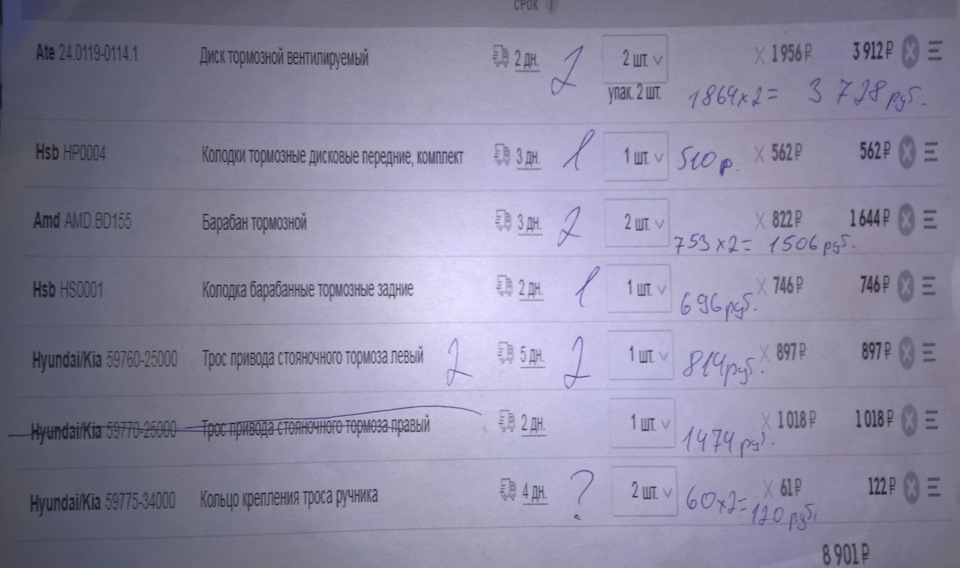 СРОК
Ate 24.0119-0114.1 Диск тормозной вентилируемый 2 дн. 2 2 шт. X 1 956 ₽ 3 912 ₽
упак. 2 шт. 1864x2= 3 728 руб.
Hsb HP0004 Колодки тормозные дисковые передние, комплект 3 дн. 1 1 шт. 510 р. X 562 ₽ 562 ₽
Amd AMD.BD155 Барабан тормозной 3 дн. 2 2 шт. X 822 ₽ 1 644 ₽
753x2= 1506 руб.
Hsb HS0001 Колодка барабанные тормозные задние 2 дн. 1 1 шт. 696 руб. X 746 ₽ 746 ₽
Hyundai/Kia 59760-25000 Трос привода стояночного тормоза левый 2 5 дн. 2 1 шт. 814 руб. X 897 ₽ 897 ₽
Hyundai/Kia 59770-25000 Трос привода стояночного тормоза правый 2 дн. 1 шт. 1474 руб. X 1 018 ₽ 1 018 ₽
Hyundai/Kia 59775-34000 Кольцо крепления троса ручника 4 дн. ? 2 шт. 60x2= X 61 ₽ 122 ₽
120 руб.
8 901 ₽